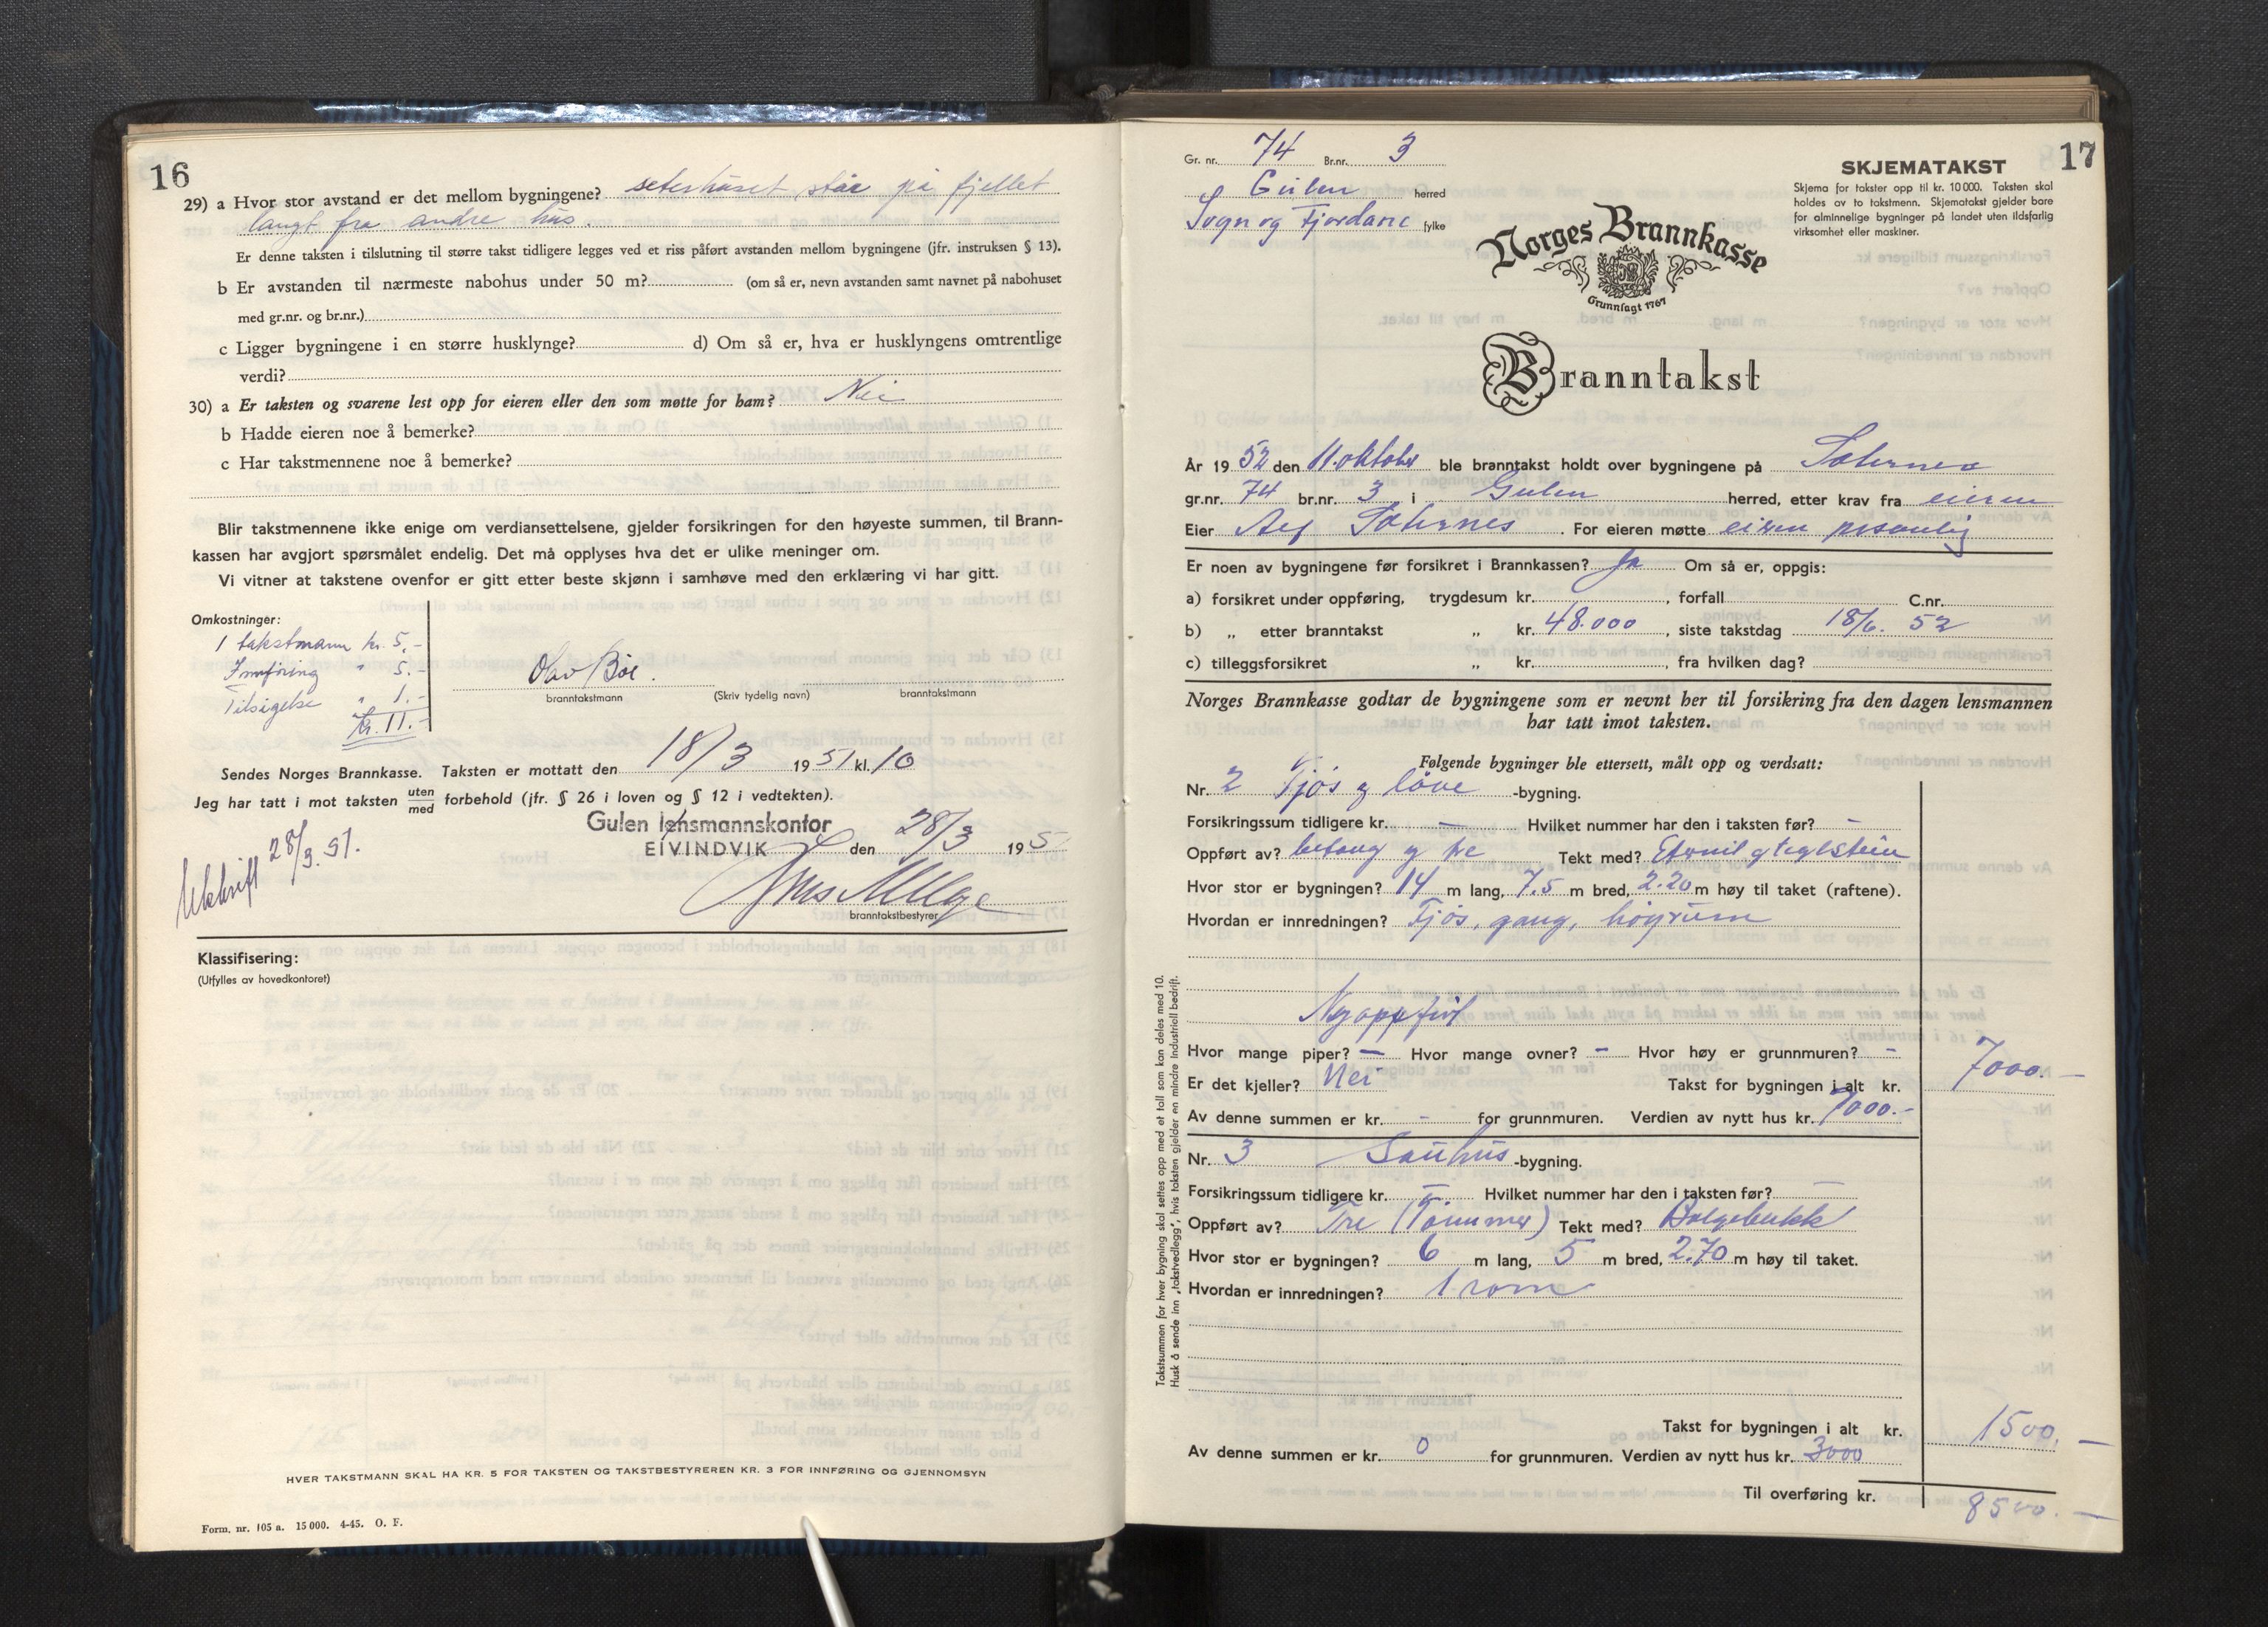 16
29) a Hvor stor avstand er det mellom bygningene? seterhuset står på fjellet
langt fra andre hus.
Er denne taksten i tilslutning til større takst tidligere legges ved et riss påført avstanden mellom bygningene (jfr. instruksen § 13).
b Er avstanden til nærmeste nabohus under 50 m? (om så er, nevn avstanden samt navnet på nabohuset
med gr.nr. og br.nr.)
c Ligger bygningene i en større husklynge? d) Om så er, hva er husklyngens omtrentlige
verdi?
30) a Er taksten og svarene lest opp for eieren eller den som møtte for ham? Nei
b Hadde eieren noe å bemerke?
c Har takstmennene noe å bemerke?
Blir takstmennene ikke enige om verdiansettelsene, gjelder forsikringen for den høyeste summen, til Brann-
kassen har avgjort spørsmålet endelig. Det må opplyses hva det er ulike meninger om.
Vi vitner at takstene ovenfor er gitt etter beste skjønn i samhøve med den erklæring vi har gitt.
Omkostninger:
1 takstmann kr. 5.-
Innføring " 5.-
Tilsigelse " 1.-
kr. 11.-
Olav Bøe.
branntakstmann (Skriv tydelig navn) branntakstmann
Sendes Norges Brannkasse. Taksten er mottatt den 18/3 1951 kl. 10
Jeg har tatt i mot taksten uten/med forbehold (jfr. § 26 i loven og § 12 i vedtekten).
Gulen lensmannskontor
EIVINDVIK den 28/3 195
Utskrift 28/3.51.
branntakstbestyrer
Klassifisering:
(Utfylles av hovedkontoret)
HVER TAKSTMANN SKAL HA KR. 5 FOR TAKSTEN OG TAKSTBESTYREREN KR. 3 FOR INNFØRING OG GJENNOMSYN
Form. nr. 105 a. 15 000. 4-45. O. F.
17
Gr. nr. 74 Br.nr. 3
Gulen herred
Sogn og Fjordane fylke
SKJEMATAKST
Skjema for takster opp til kr. 10 000. Taksten skal
holdes av to takstmenn. Skjematakst gjelder bare
for alminnelige bygninger på landet uten ildsfarlig
virksomhet eller maskiner.
Norges Brannkasse
Grunnlagt 1767
Branntakst
År 1952 den 11. oktober ble branntakst holdt over bygningene på
gr.nr. 74 br.nr. 3 i Gulen herred, etter krav fra eieren
Eier For eieren møtte eieren personlig
Er noen av bygningene før forsikret i Brannkassen? Ja Om så er, oppgis:
a) forsikret under oppføring, trygdesum kr. , forfall C.nr.
b) „ etter branntakst „ kr. 48.000, siste takstdag 18/6. 52
c) tilleggsforsikret „ kr. , fra hvilken dag?
Norges Brannkasse godtar de bygningene som er nevnt her til forsikring fra den dagen lensmannen
har tatt imot taksten.
Følgende bygninger ble ettersett, målt opp og verdsatt:
Nr. 2 Fjøs og løve -bygning.
Forsikringssum tidligere kr. — Hvilket nummer har den i taksten før? —
Oppført av? betong og tre Tekt med? Eternit og teglstein
Hvor stor er bygningen? 14 m lang, 7.5 m bred, 2.20 m høy til taket (raftene).
Hvordan er innredningen? Fjøs, gang, høyrum
Nyoppført
Hvor mange piper? — Hvor mange ovner? — Hvor høy er grunnmuren? —
Er det kjeller? Nei Takst for bygningen i alt kr. 7000.—
Av denne summen er kr. - for grunnmuren. Verdien av nytt hus kr. 7000.-
Nr. 3 Sauhus -bygning.
Forsikringssum tidligere kr. — Hvilket nummer har den i taksten før? —
Oppført av? Tre (Tømmer) Tekt med? Bølgeblikk
Hvor stor er bygningen? 6 m lang, 5 m bred, 2.70 m høy til taket.
Hvordan er innredningen? 1 rom
Takst for bygningen i alt kr. 1500.—
Av denne summen er kr. 0 for grunnmuren. Verdien av nytt hus kr. 3000
Til overføring kr. 8500.—
Takstsummen for hver bygning skal settes opp med et tall som kan deles med 10.
Husk å sende inn „takstvedlegg”, hvis taksten gjelder en mindre industriell bedrift.